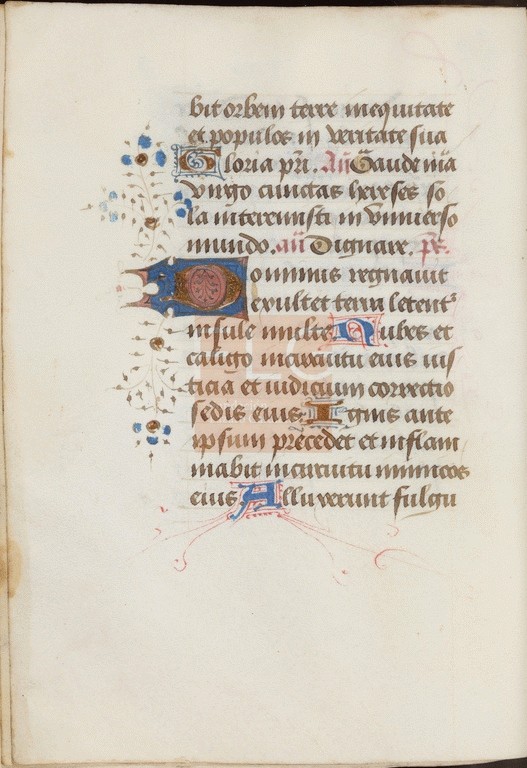 bit orbem terre in equitate
et populos in veritate sua
Gloria pr̃i. Añ Gaude m̃ia
virgo cunctas hereses so
la interemisti in vniuerso
mundo. añ Dignare. ps̃.
Dominus regnauit
exultet terra letent᷑
insule multe Nubes et
caligo in circuitu eius ius
ticia et iudicium correctio
sedis eius Ignis ante
ipsum precedet et inflam
mabit in circuitu inimicos
eius Alluxerunt fulgu